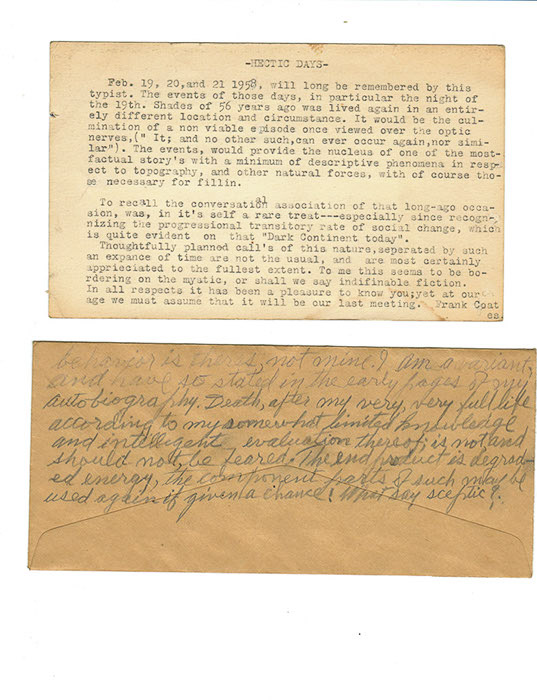 -HECTIC DAYS-
Feb. 19, 20,and 21 1958, will long be remembered by this
typist. The events of those days, in particular the night of
the 19th. Shades of 56 years ago was lived again in an entir-
ely different location and circumstance. It would be the cul-
mination of a non viable episode once viewed over the optic
nerves,(" It; and no other such,can ever occur again,nor simi-
lar"). The events, would provide the nucleus of one of the most-
factual story's with a minimum of descriptive phenomena in resp-
ect to topography, and other natural forces, with of course tho-
se necessary for fillin.
To recall the conversational association of that long-ago occa-
sion, was, in it's self a rare treat---especially since recogn-
nizing the progressional transitory rate of social change, which
is quite evident on that "Dark Continent today".
Thoughtfully planned call's of this nature,seperated by such
an expance of time are not the usual, and are most certainly
apprieciated to the fullest extent. To me this seems to be bo-
rdering on the mystic, or shall we say indifinable fiction.
In all respects it has been a pleasure to know you;yet at our
age we must assume that it will be our last meeting. Frank Coat
es.
behavior is theirs, not mine. I am a variant,
and have so stated in the early pages of my
autobiography. Death, after my very very full life
according to my somewhat limited knowledge
and intellegent evaluation thereof; is not and
should not, be feared. The end product is degrad-
ed energy, the component parts of such may be
used again if given a chance! What say sceptic?